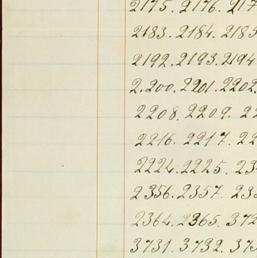 2175. 2176. 217
2183. 2184. 2185
2192. 2193. 2194
2.200. 2201. 2202.
2208. 2209. 22
2216. 2217. 22
2224. 2225. 23
2356. 2357. 235
2364. 2365. 372
3731. 3732. 373